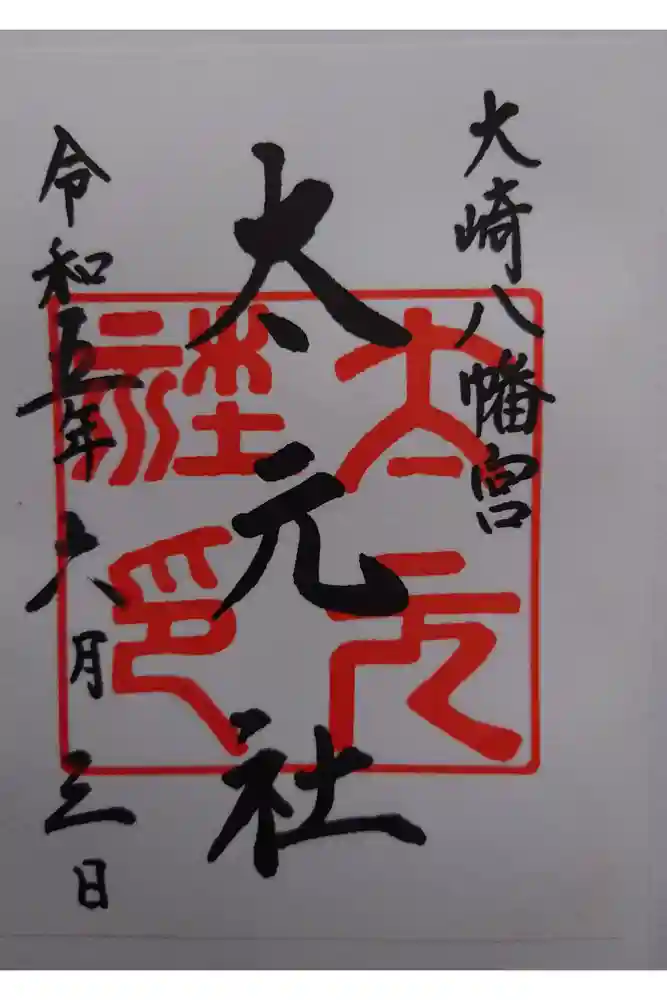 大崎八幡宮
太元社
太元社印
令和五年六月三日